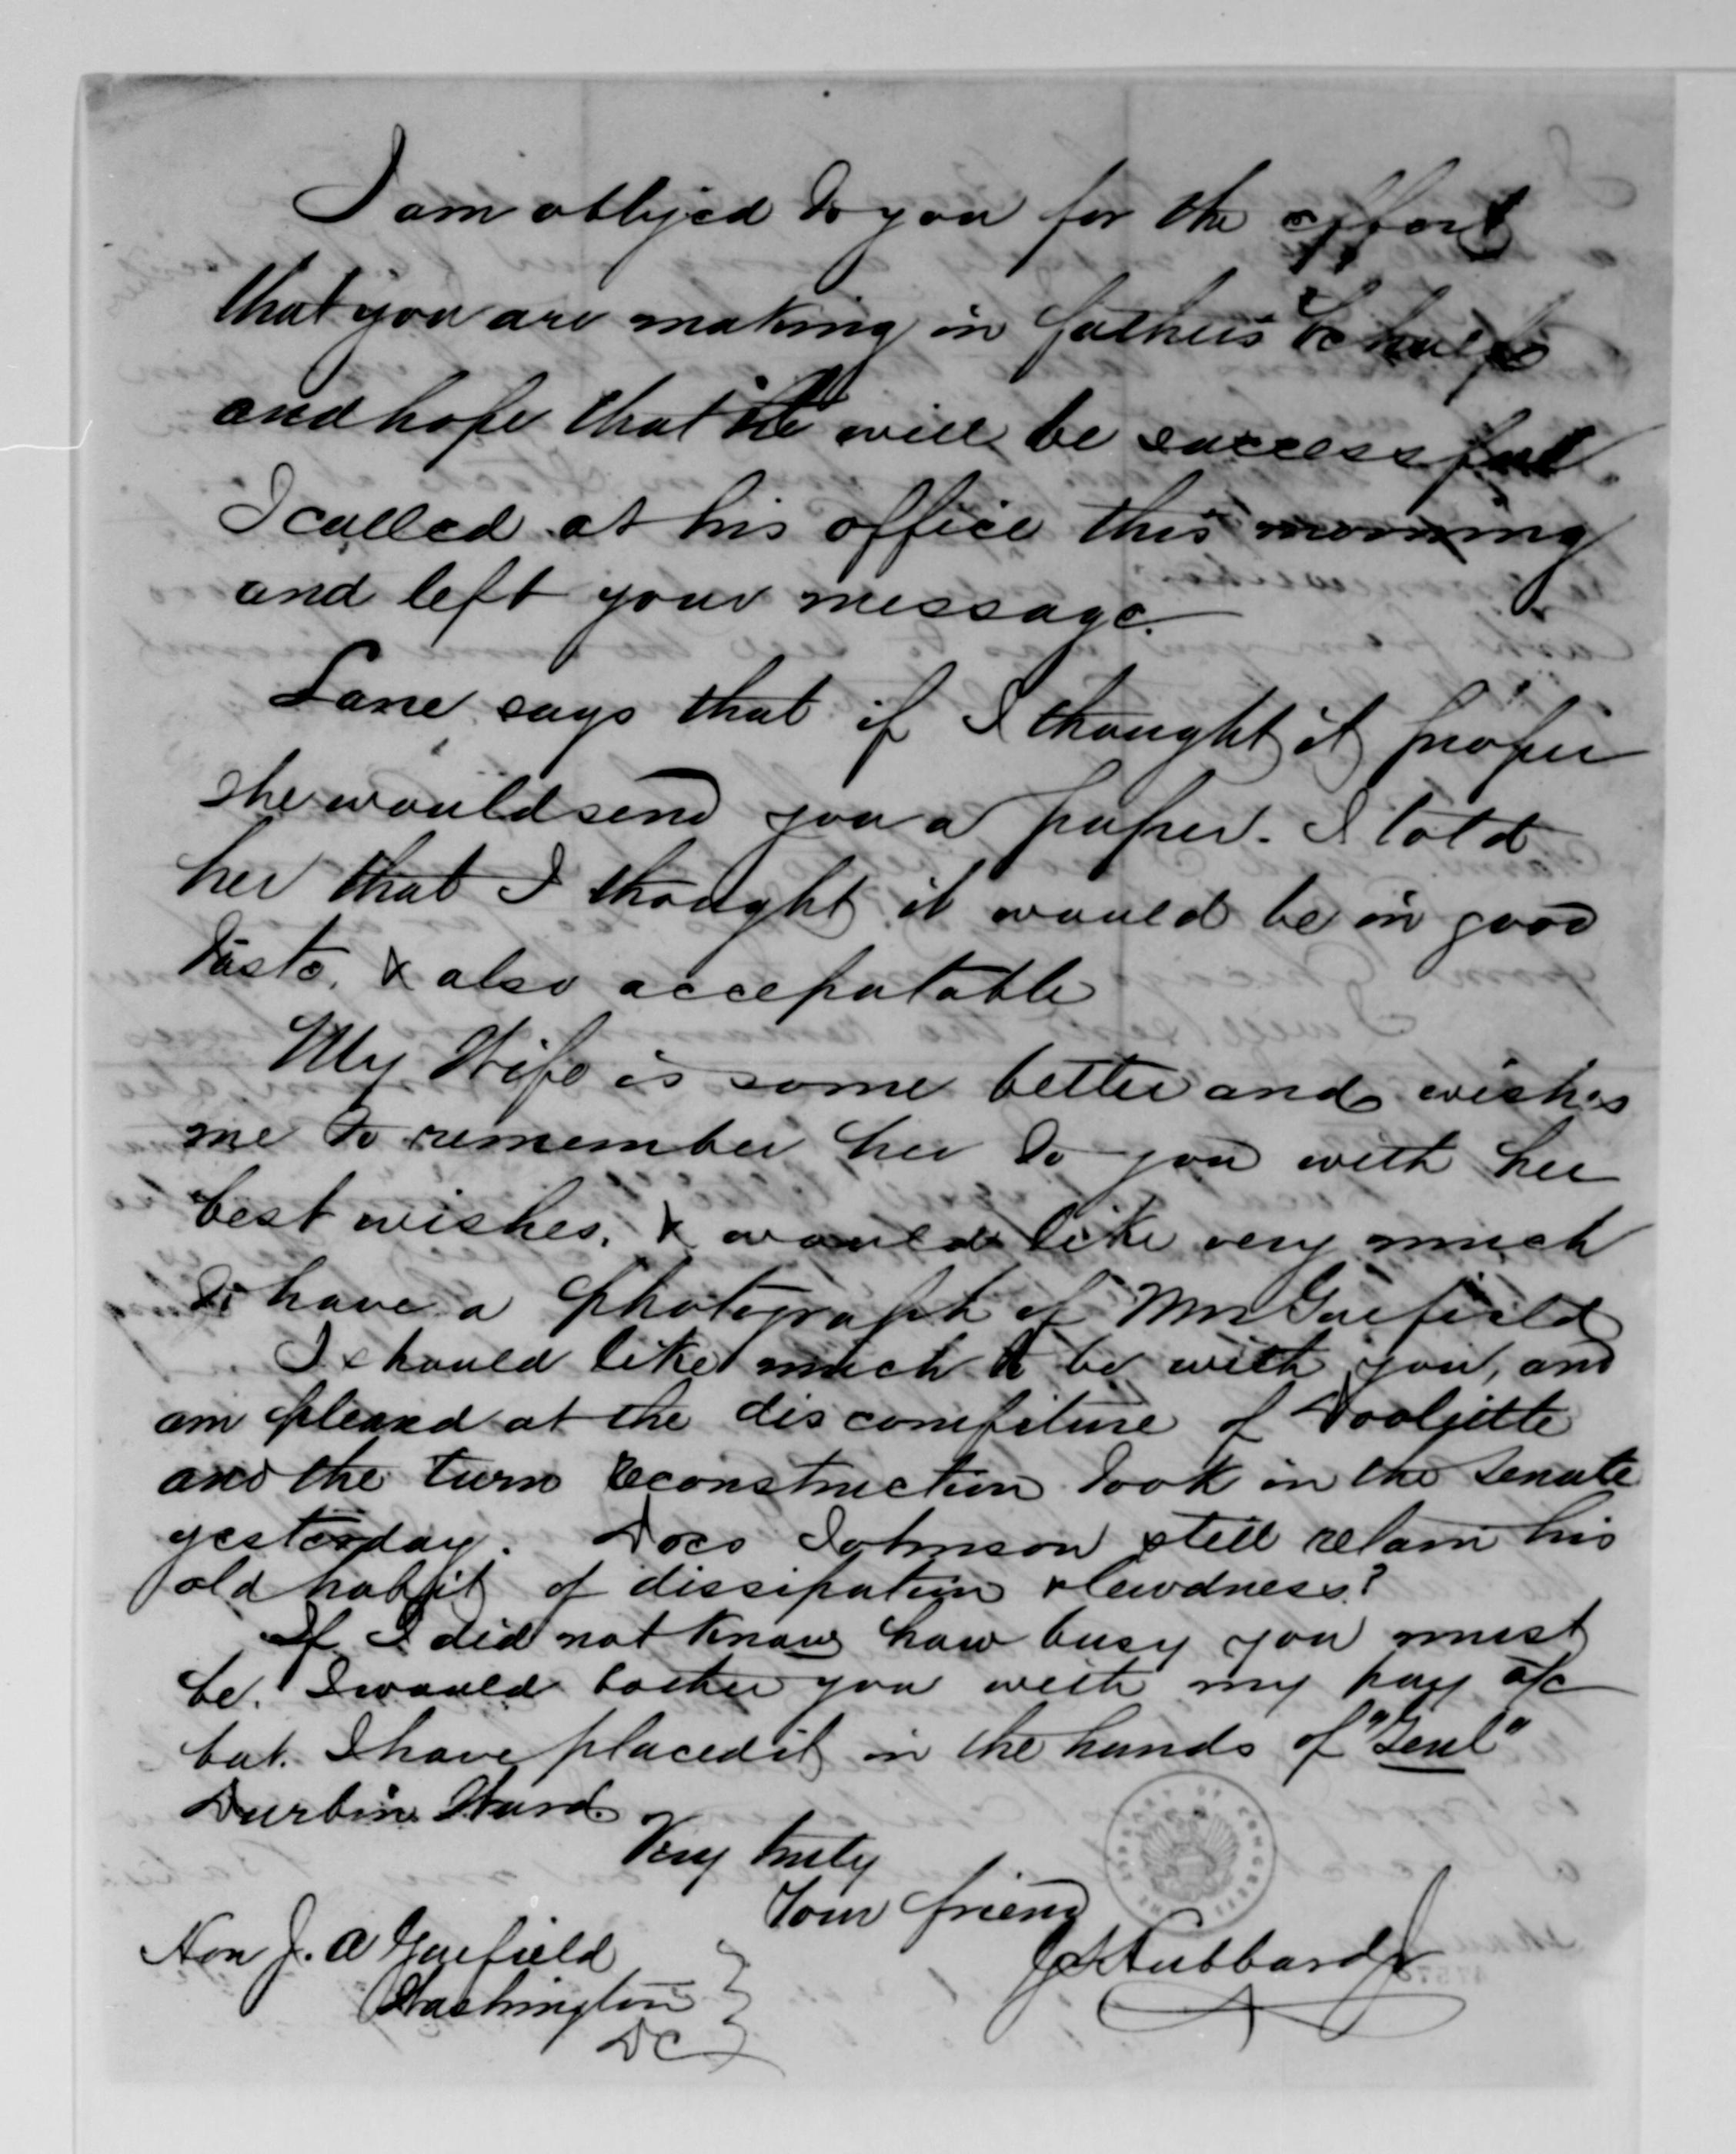 I am obliged to you for the effort
that you are making in fathers behalf
and hope that it will be successful.
I called at his office this morning
and left your message.
Lane says that if I thought it proper
she would send you a paper. I told
her that I thought it would be in good
taste, & also accepatable
My Wife is some better and wishes
me to remember her to you with her
best wishes, & would like very much
to have a photograph of Mrs Garfield
I should like much to be with you, and
am pleased at the discomfiture of Doolittle
and the turn reconstruction took in the Senate
yesterday. Does Johnson still retain his
old habit of dissipation & lewdness?
If I did not know how busy you must
be. I would bother you with my pay a/c
but. I have placed it in the hands of "Genl"
Durbin Ward.
Very truly
Your friend
J Hubbard
Hon J. A Garfield
Washington
DC
LIBRARY OF CONGRESS